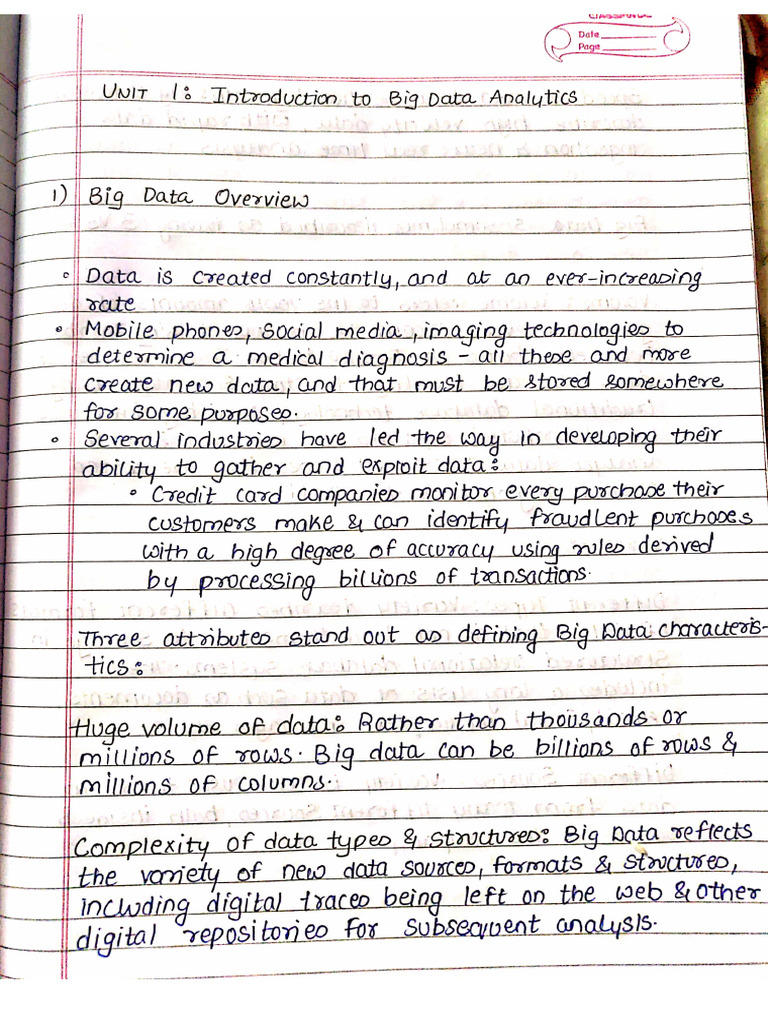 CLASSMATE
Date
Page
UNIT 1: Introduction to Big Data Analytics
1) Big Data Overview
Data is created constantly, and at an ever-increasing
rate
Mobile phones, social media, imaging technologies to
determine a medical diagnosis - all these and more
create new data, and that must be stored somewhere
for some purposes.
Several industries have led the way in developing their
ability to gather and exploit data:
Credit card companies monitor every purchase their
customers make & can identify fraudlent purchases
with a high degree of accuracy using rules derived
by processing billions of transactions.
Three attributes stand out as defining Big Data characteris-
tics:
Huge volume of data: Rather than thousands or
millions of rows. Big data can be billions of rows &
millions of columns.
Complexity of data types & structures: Big Data reflects
the variety of new data sources, formats & structures,
including digital traces being left on the web & other
digital repositories for subsequent analysis.